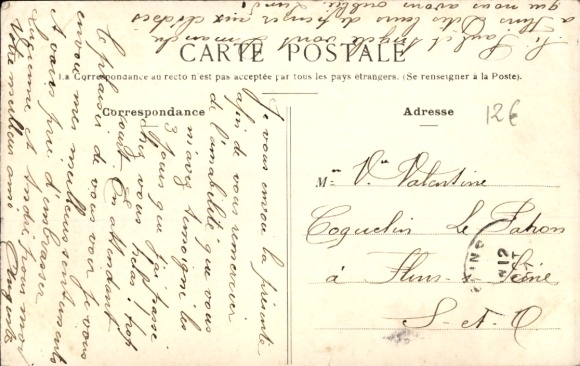 CARTE POSTALE
La Correspondance au recto n'est pas acceptée par tous les pays étrangers. (Se renseigner à la Poste).
Correspondance
Je vous envoie la présente
afin de vous remercier
de l'amabilité que vous
m'avez témoigné les
3 jours que j'ai passé
chez vous, hélas! trop
court. En attendant
le plaisir de vous voir je vous
envoie mes meilleurs sentiments
Avoir embrasser
Eugénie et André pour moi
Votre meilleur ami Auguste
Si Paul et Angèle vont dimanche
à Flins dites leurs de penser aux
que nous avons oublié Lundi
Adresse
12€
Mme Ve Valentine
Coquelin Le Pahon
à Flins s- Seine
S- et- O
FLINS